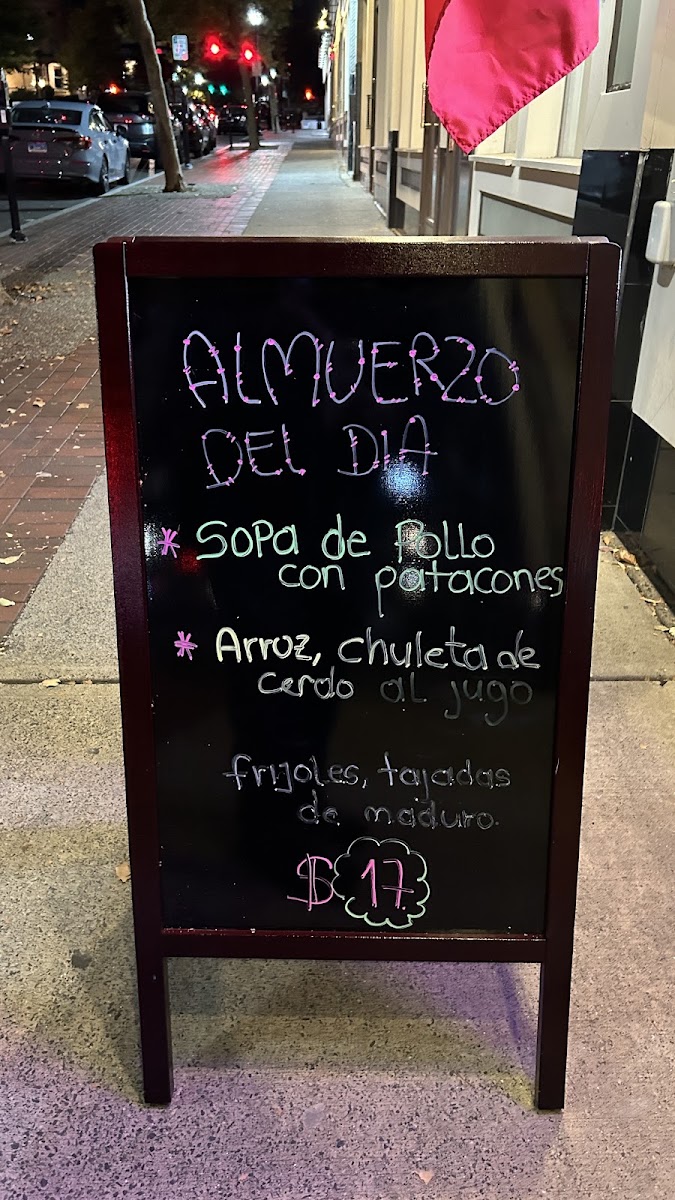 ALMUERZO
DEL DIA
* Sopa de Pollo
con patacones
* Arroz, chuleta de
cerdo al jugo
frijoles, tajadas
de maduro.
$17